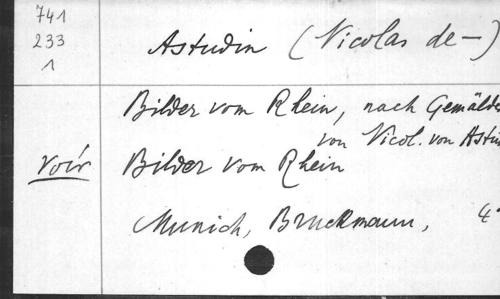 741
233
1
Astudin (Nicolas de —)
Bilder vom Rhein, nach Gemälde
von Nicol. von Astu
voir Bilder vom Rhein
Munich, Bruckmann, 4°